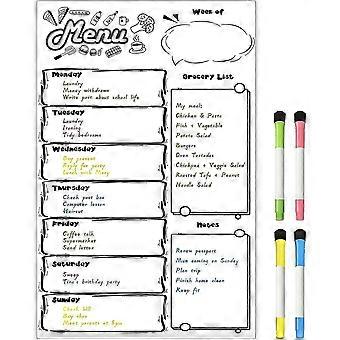 Menu
Week of
Monday
Laundry
Money withdrawn
Write post about school life
Tuesday
Laundry
Ironing
Tidy bedrooms
Wednesday
Buy present
Reply for party
Lunch with Mary
Thursday
Check post box
Computer lesson
Haircut
Friday
Coffee talk
Supermarket
Send letter
Saturday
Sweep
Tina's birthday party
Sunday
Check
Buy
Meet parents at 8pm
Grocery List
My meals
Chicken & Pasta
Fish + Vegetable
Potato Salad
Burgers
Oven Tostadas
Chickpea + Veggie Salad
Roasted Tofu + Peanut
Noodle Salad
Notes
Renew passport
Mum coming on Sunday
Plan trip
Finish home clean
Keep fit